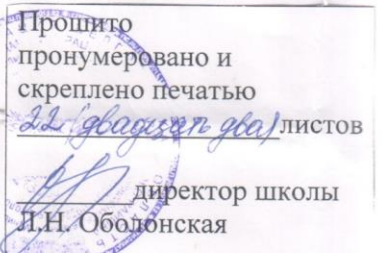 Прошито
пронумеровано и
скреплено печатью
22 (двадцать два) листов
директор школы
Л.Н. Оболонская